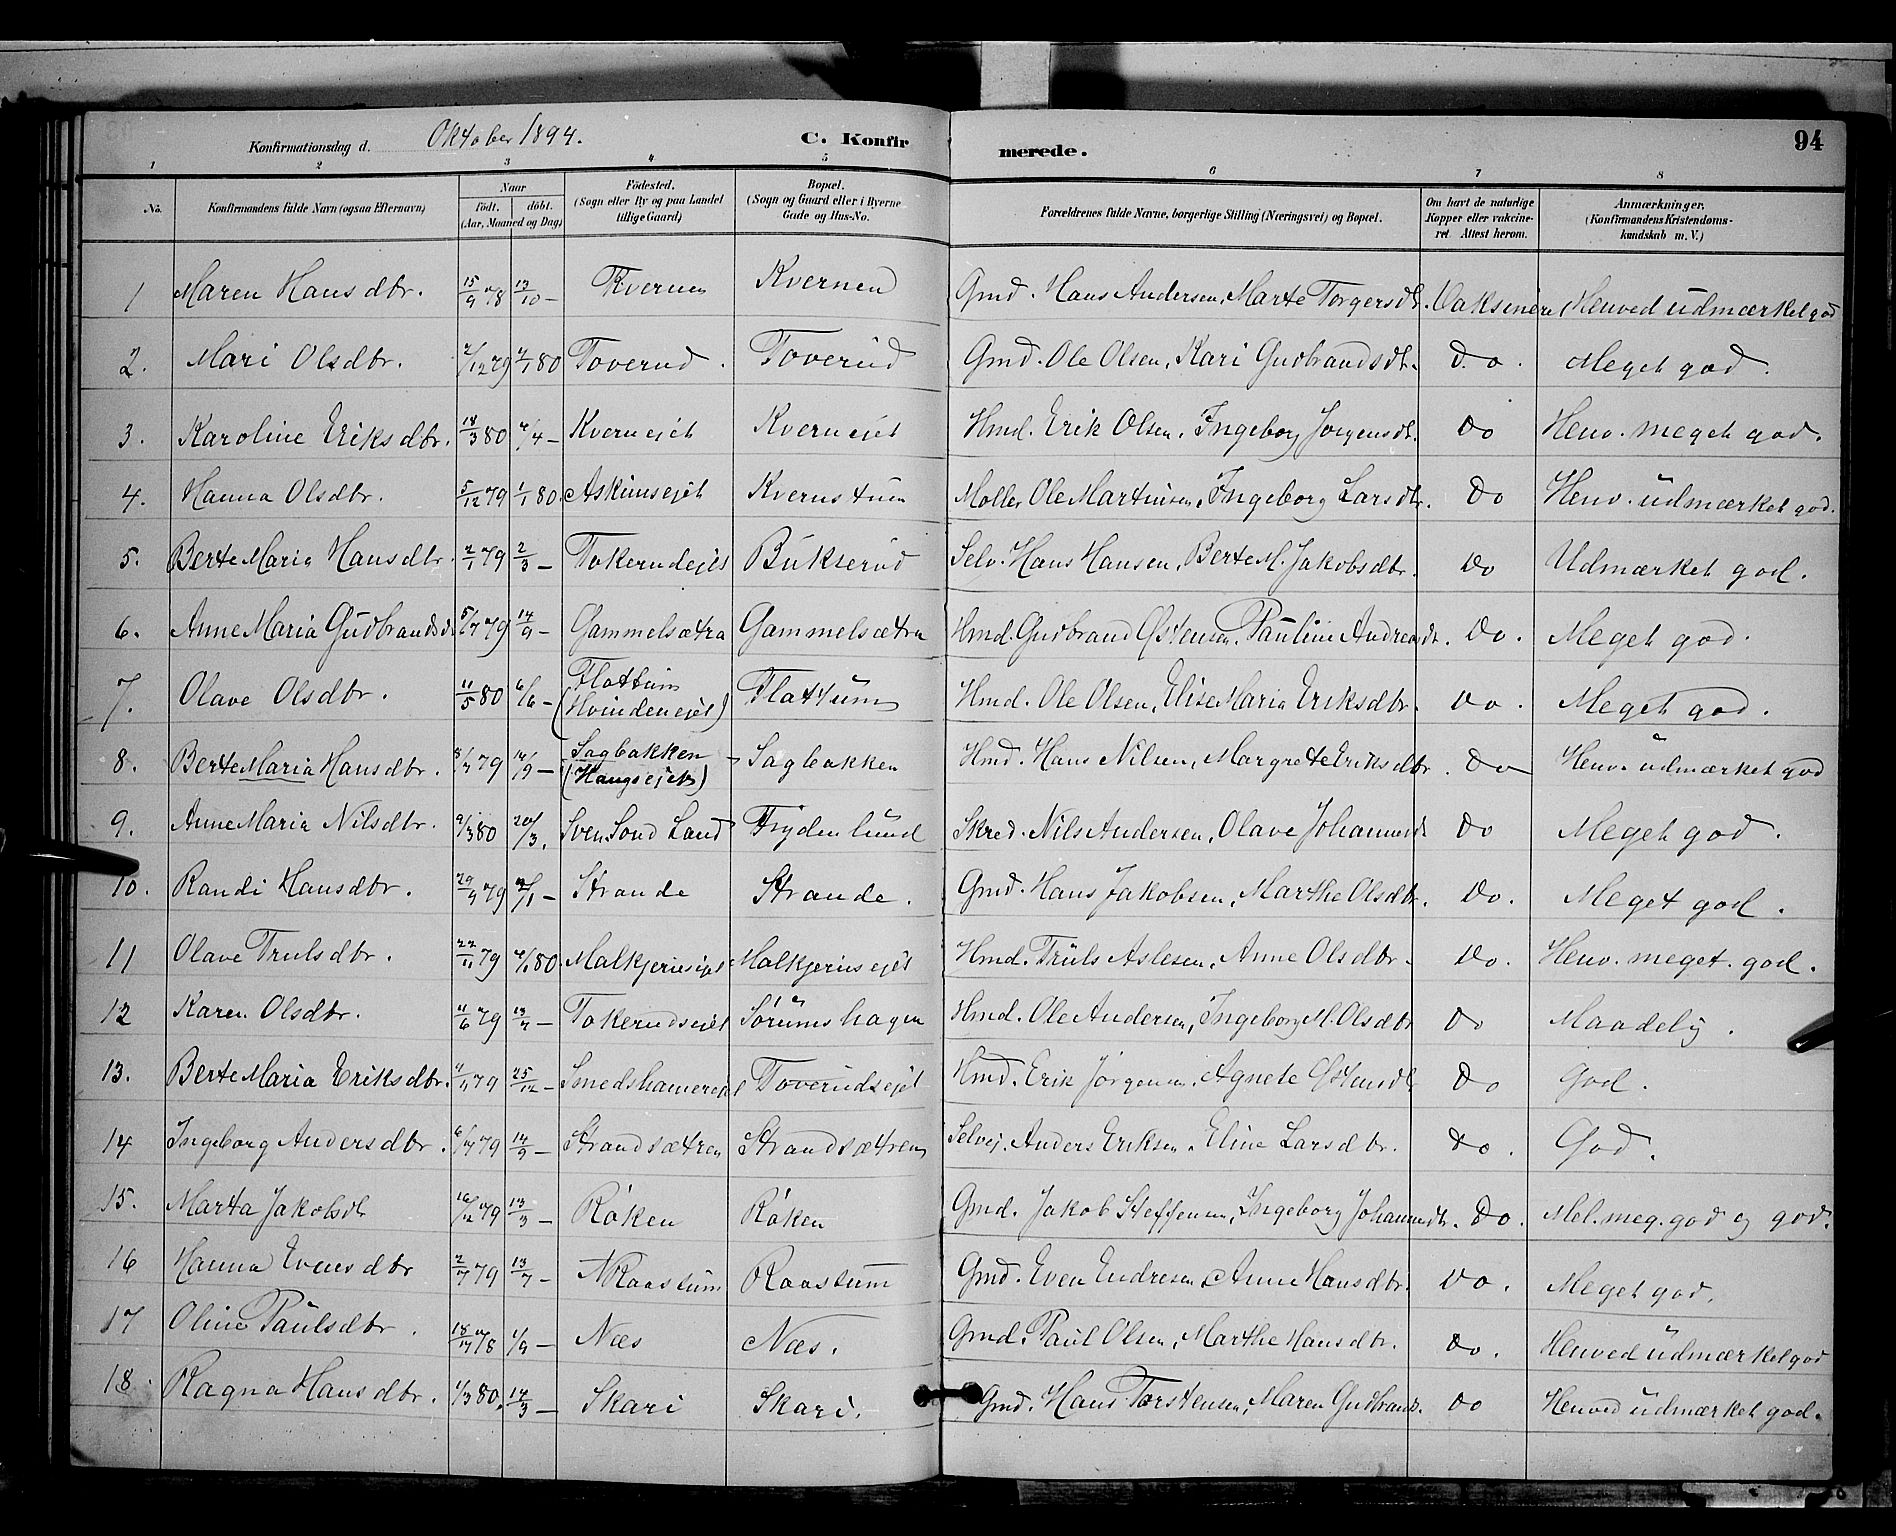 94
Konfirmationsdag d. Oktober 1894. C. Konfirmerede.
1 2 3 4 5 6 7 8
No. Konfirmandens fulde Navn (ogsaa Efternavn) Naar født. døbt. (Aar, Maaned og Dag) Fødested. (Sogn eller By og paa Landet tillige Gaard) Bopæl. (Sogn og Gaard eller i Byerne Gade og Hus-No. Forældrenes fulde Navne, borgerlige Stilling (Næringsvei) og Bopæl. Om havt de naturlige Kopper eller vakcineret. Attest herom. Anmærkninger. (Konfirmandens Kristendomskundskab m. V.)
1 Maren Hansdtr. 15/9 78 13/10 – Kvernen Kvernen Gmd. Hans Andersen, Marte Torgersdt. Vaksinere Henved udmærket god
2. Mari Olsdtr. /12 79 /1 80 Toverud. Toverud Gmd. Ole Olsen, Kari Gudbrandsdt. Do. Meget god.
3. Karoline Eriksdtr. 18/3 80 /4 – Kverneiet Kverneiet Hmd. Erik Olsen, Ingeborg Jørgensdt. Do Henv. meget god.
4. Hanna Olsdtr. 5/12 79 1/1 80. Askimseiet Kvernstuen Møller Ole Martinsen, Ingeborg Larsdtr. Do Henv. udmærket god.
5. Berte Maria Hansdtr. 2/1 79 2/3 – Tokerudeiet Bukserud Selv. Hans Hansen, Berte M. Jakobsdtr. Do Udmærket god.
6. Anne Maria Gudbrandsdt 5/7 79 14/9 – Gammelsætra Gammelsætra Hmd. Gudbrand Østensen, Pauline Andreasdt. Do. Meget god.
7. Olave Olsdtr. 11/5 80 6/6 – Flattum (Hvindeneiet) Flattum Hmd. Ole Olsen, Elise Maria Eriksdtr. Do. Meget god.
8. Berte Maria Hansdtr. 8/7 79 14/9 – Sagbakken (Haugseiet) Sagbakken Hmd. Hans Nilsen, Margrete Eriksdtr. Do Henv. udmærket god
9. Anne Maria Nilsdtr. 9/3 80 20/3. Sven Sønd Land Frydenlund Skred. Nils Andersen, Olave Johannesdt Do Meget god.
10. Randi Hansdtr. 29/9 79 /1 – Strande Strande. Gmd. Hans Jakobsen, Marthe Olsdtr. Do. Meget god.
11 Olave Trulsdtr. 22/11 79 /1 80. Malkjernseiet Malkjernseiet Hmd. Truls Aslesen, Anne Olsdtr. Do. Henv. meget. god.
12 Karen Olsdtr. 11/6 79 13/7 – Tokerudseiet Sørumshagen Hmd. Ole Andersen, Ingeborg M. Olsdtr Do Maadelig.
13. Berte Maria Eriksdtr. /11 79 25/12 – Smedshamereiet Toverudseiet Hmd. Erik Jørgensen, Agnete Østensdt Do God.
14 Ingeborg Andersdtr. 6/7 79 14/9 – Strandsætren Strandsætren Selvej. Anders Eriksen, Eline Larsdtr. Do. God.
15. Marta Jakobsdt 16/12 79 13/3 – Røken Røken Gmd. Jakob Steffensen, Ingeborg Johannesdt. Do. Mel. meg. god og god.
16 Hanna Evensdtr 2/7 79 13/7 – N Raastum Raastum Gmd. Even Endresen, Anne Hansdtr. Do. Meget god.
17 Oline Paulsdtr. 18/7 78 1/9 – Næs Næs. Gmd. Paul Olsen, Marthe Hansdtr. Do. Henved udmærket god
18. Ragna Hansdtr. 1/3 80. 14/3 – Skari Skari. Gmd. Hans Torstensen, Maren Gudbrands. Do Henved udmærket god.